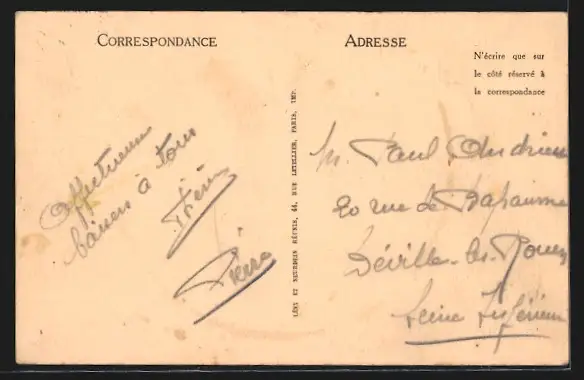 CORRESPONDANCE
ADRESSE
N'écrire que sur
le côté réservé à
la correspondance
LÉVY ET NEURDEIN RÉUNIS, 44, RUE LETELLIER, PARIS, IMP.
Affectueux
baisers à tous
Pierre
M. Paul Andrieu
20 rue de Bapaume
Déville-les-Rouen
Seine Inférieure